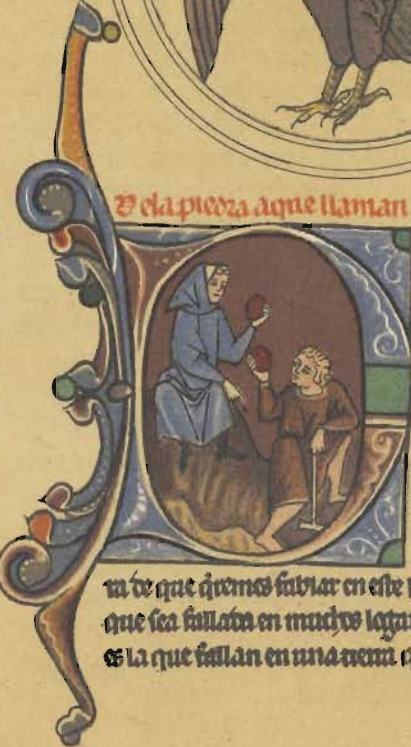 De la piedra a que llaman
ra de que q̃remos fablar en este
que sea fallada en muchos loga
es la que fallan en una tierra